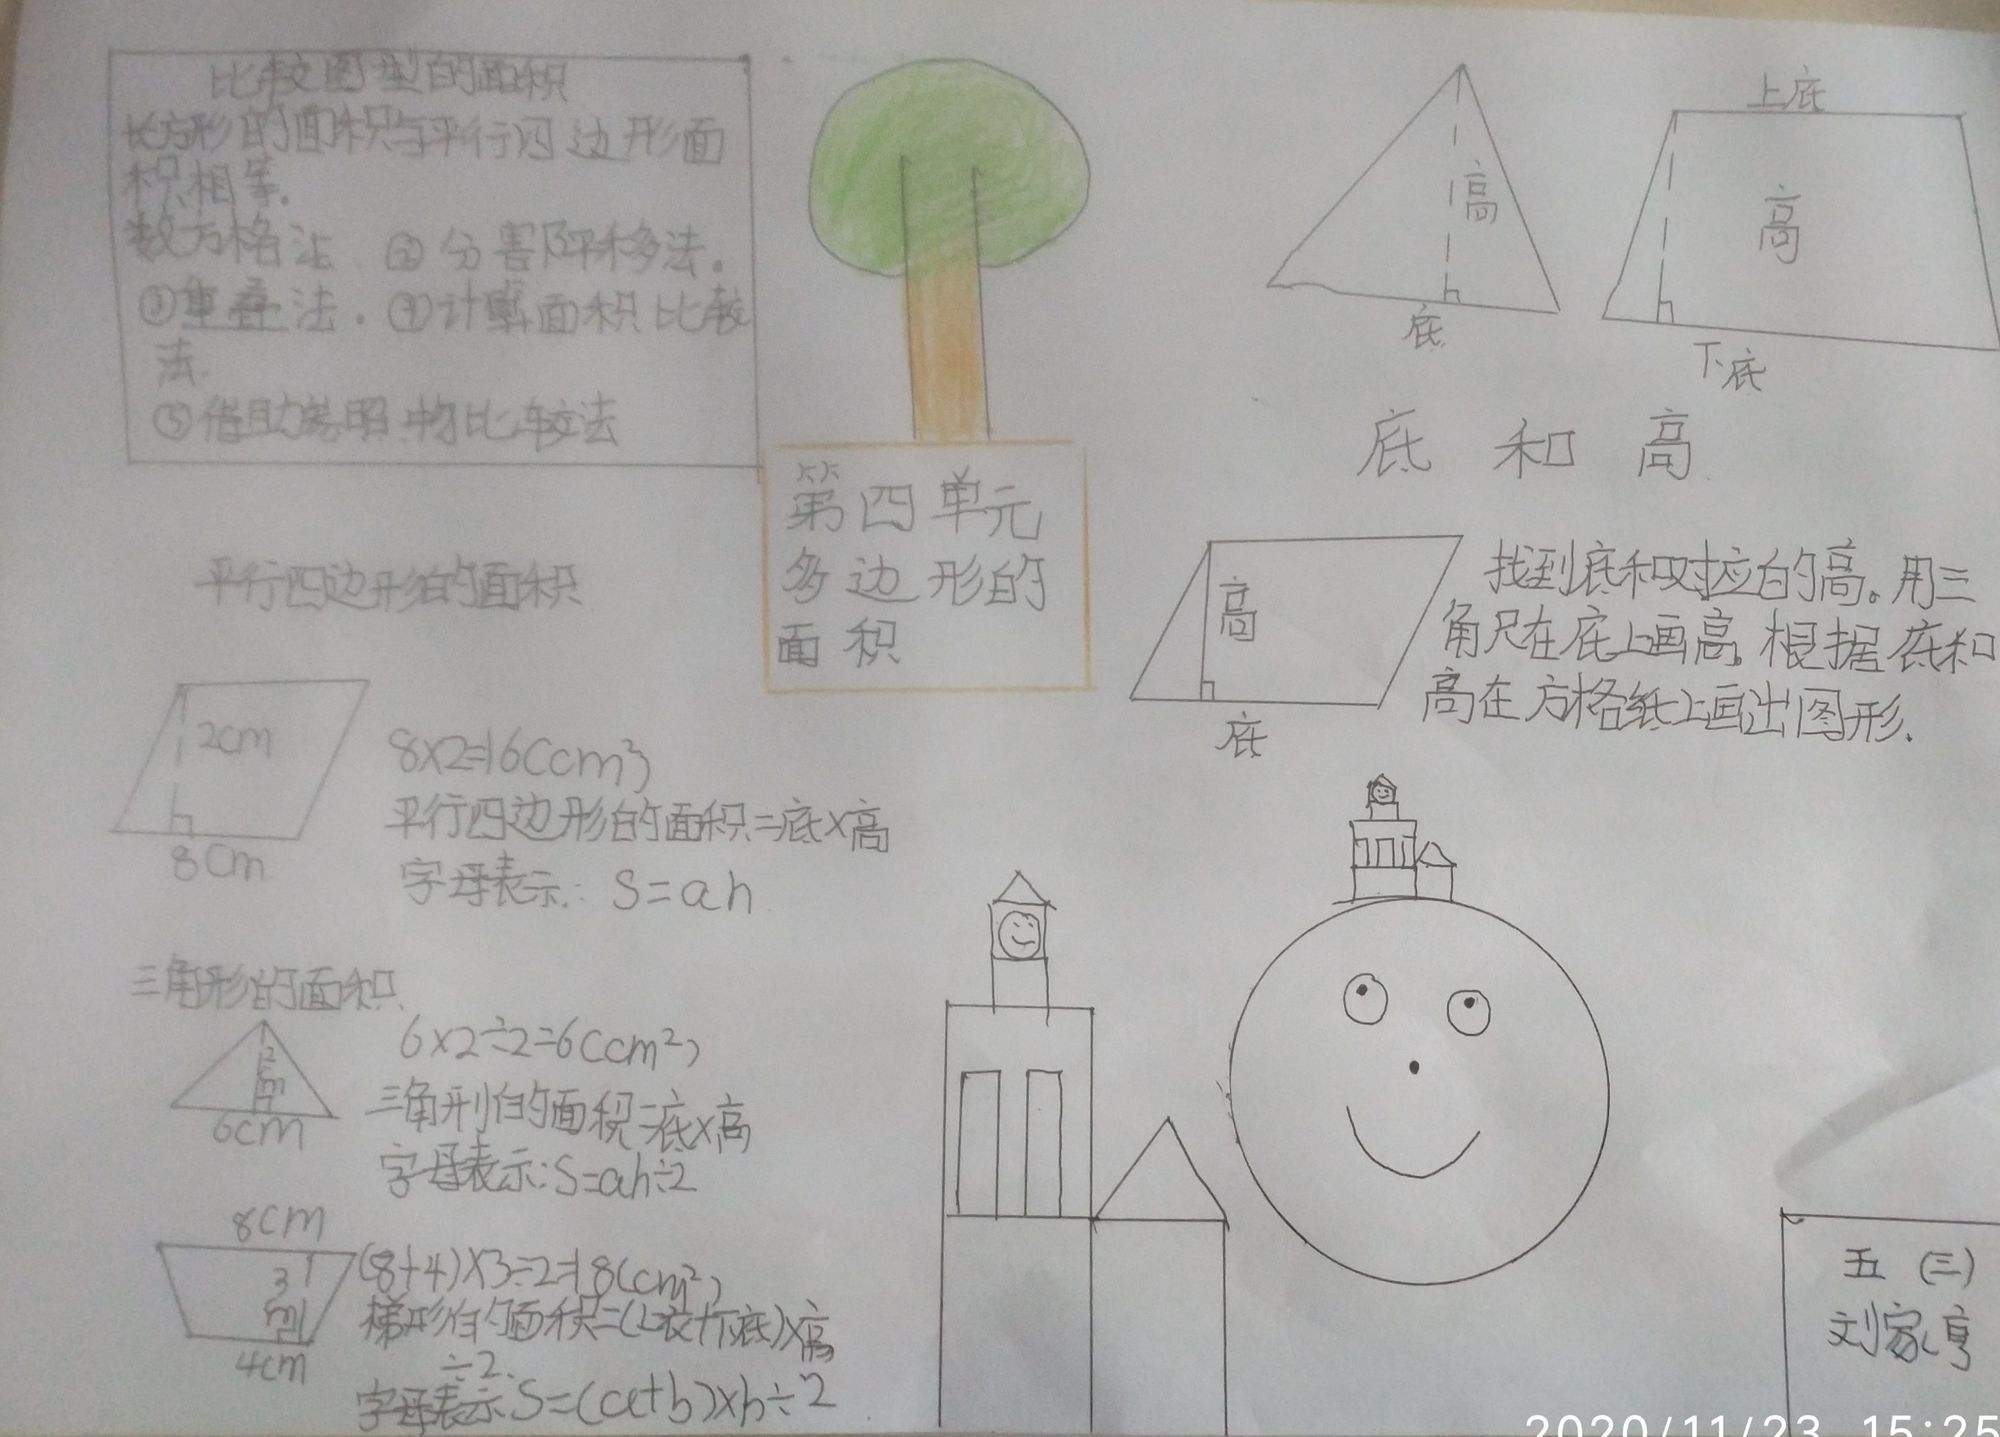 比较图型的面积
长方形的面积与平行四边形面
积相等.
数方格法、②分害阵移法.
③重叠法.④计算面积比较
法.
⑤借助参照物比较法
第四单元
多边形的
面积
高
底
上底
高
下底
底和高
高
底
找到底和对应的高。用三
角尺在底上画高。根据底和
高在方格纸上画出图形.
平行四边形的面积
2cm
8cm
8×2=16(cm²)
平行四边形的面积=底×高
字母表示: S=ah
三角形的面积
2
m
6cm
6×2÷2=6(cm²)
三角形的面积=底×高
字母表示:S=ah÷2
8cm
3
m
4cm
(8+4)×3÷2=18(cm²)
梯形的面积=(上底+下底)×高
÷2.
字母表示:S=(a+b)×h÷2
五(三)
刘家亨
2020/11/23 15:25